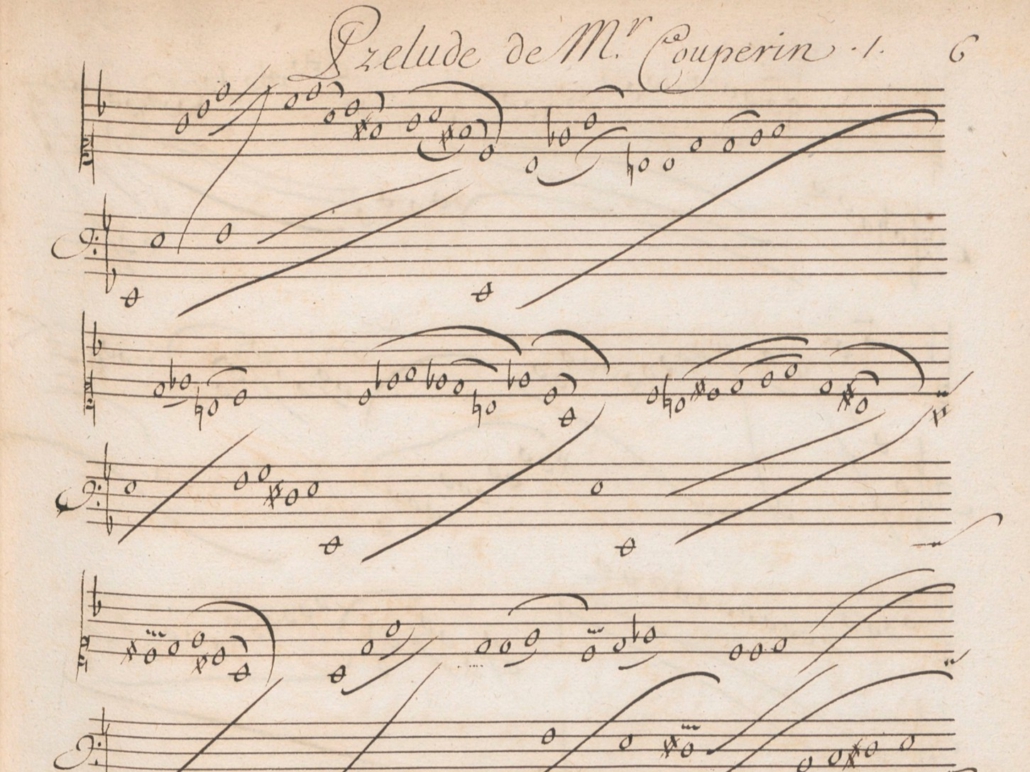 Prelude de Mr Couperin ·1· 6